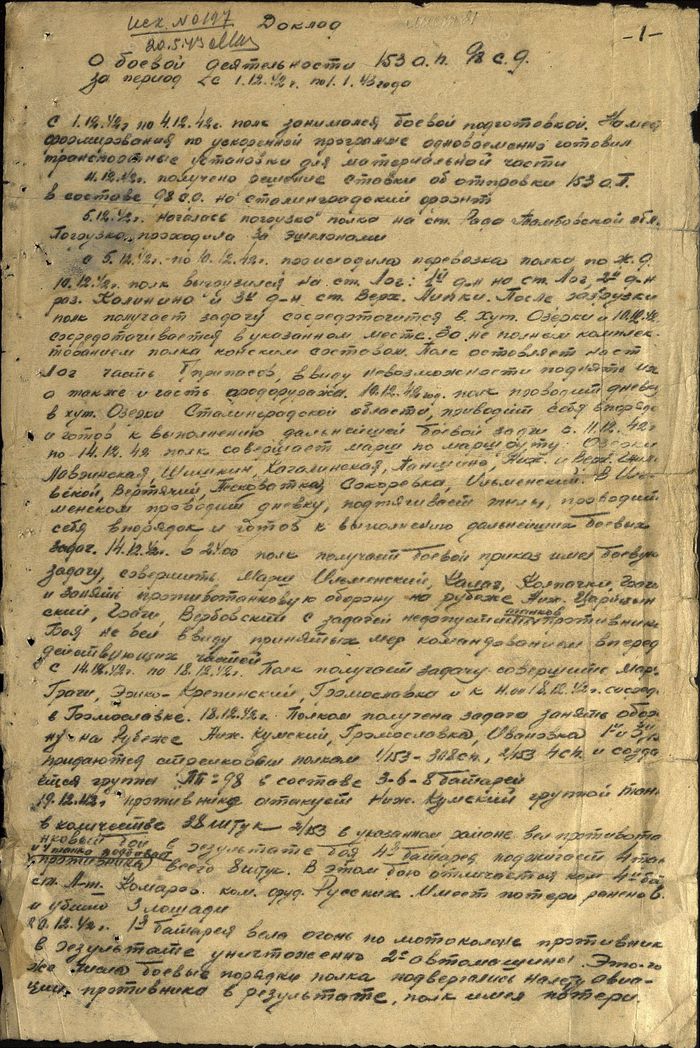 Исх. № 0197
20.5.43
Доклад
-1-
О боевой деятельности 153 а.п. 98 с.д.
за период с 1.12.42г. по 1.1.43 года
с 1.12.42г по 4.12.42г. полк занимался боевой подготовкой.
формирования по ускоренной программе одновременно готовил
транспортные установки для материальной части
4.12.42г. получено решение Ставки об отправки 153 а.п.
в составе 98 с.д. на Сталинградский фронт
5.12.42г. началась погрузка полка на ст. Рада Тамбовской обл.
Погрузка проходила за эшелонами
с 5.12.42г. по 10.12.42г. происходила перевозка полка по ж.д.
10.12.42г. полк выгрузился на ст. Лог: 1й д-н на ст. Лог, 2й д-н
раз. Калинино и 3й д-н. ст. Верх. Липки. После разгрузки
полк получает задачу сосредоточится в хут. Озерки и 10.12.42
сосредотачивается в указанном месте. За не полным комплек-
тованием полка конским составом. Полк оставляет на ст
Лог часть припасов, в виду невозможности поднять их
а также и часть 10.12.42 полк проводит дневку
в хут. Озерки Сталинградской области, приводит себя в порядок
и готов к выполнению дальнейшей боевой задачи с 11.12.42г
по 14.12.42 полк совершает марш по маршруту: Озерки
Шишкин, Качалинская, Паншино, Ниж. и Верх.
Вертячий, Песковатка, Сокоревка, Ильменский. В Иль-
менском проводит дневку, подтягивает тылы, приводит
себя в порядок и готов к выполнению дальнейших боевых
задач. 14.12.42г. в 24.00 полк получает боевой приказ имея боевую
задачу, совершить марш Ильменский, Калач, Колпачки,
и занять противотанковую оборону на рубеже Ниж. Царицын
ский, Грачи, Вербовский с задачей недопустить танков противника
Боя не вел ввиду принятых мер командованием вперед
действующих частей
с 14.12.42г. по 18.12.42г. Полк получает задачу совершить марш
Грачи, Эрико-Крепинский, Громославка и к 18.12.42г. сосред.
в Громославке. 18.12.42г. Полком получена задача занять обор
ну на рубеже Ниж. Кумский, Громославка, Ивановка 1й и 3й
придаются стрелковым полкам 1/153 - 308 сп, 2/153 4 сп и созда
ется группа ПП-98 в составе 3-6-8 батарей
19.12.42г противник атакует Ниж. Кумский группой тан.
в количестве 28 штук 2/153 в указанном районе вел противота
нковый бой в результате боя 4я батарея поджигает 4 тан
противника всего 8 штук. В этом бою отличается ком 4й ба
ст. л-т. Комаров. ком. оруд. Русских. Имеет потери ранено 6.
и убиты 3 лошади
20.12.42г. 1я батарея вела огонь по мотоколоне противник
в результате уничтоженно 2е автомашины. Этого
же числа боевые порядки полка подвергались налету авиа-
ции противника в результате, полк имел потери.